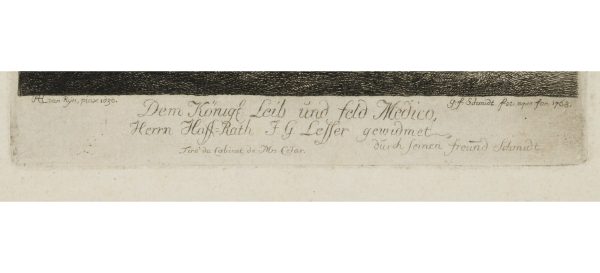 van Ryn, pinx 1630.
G. f. Schmidt fec. aqua for. 1768.
Dem Königl Leib und feld Medico,
Herrn Hoff-Rath F G Lesser gewidmet
durch seinen freund Schmidt
Tiré du Cabinet de Mrs Cesar.